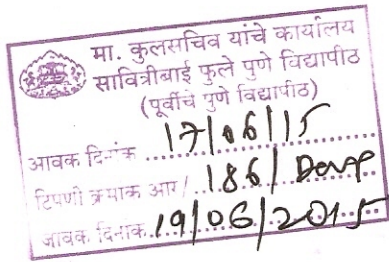 मा. कुलसचिव यांचे कार्यालय
सावित्रीबाई फुले पुणे विद्यापीठ
(पूर्वीचे पुणे विद्यापीठ)
आवक दिनांक 17/06/15
टिपणी क्रमाक आर/ 186/
जावक दिनाक 19/06/2015